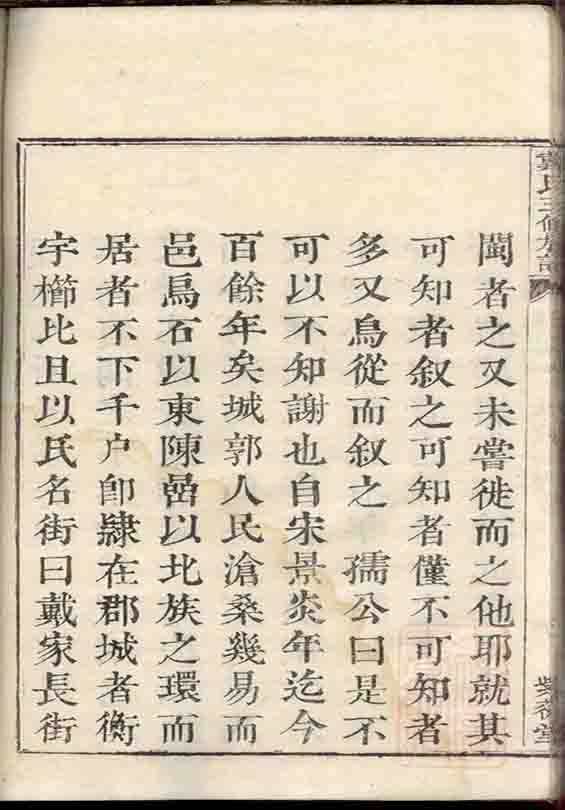 戴氏三修族譜
閩者之又未嘗徙而之他耶就其
可知者叙之可知者僅不可知者
多又烏從而叙之　孺公曰是不
可以不知謝也自宋景炎年迄今
百餘年矣城郭人民滄桑幾易而
邑烏石以東陳嵒以北族之環而
居者不下千户卽隸在郡城者衡
宇櫛比且以氏名街曰戴家長街